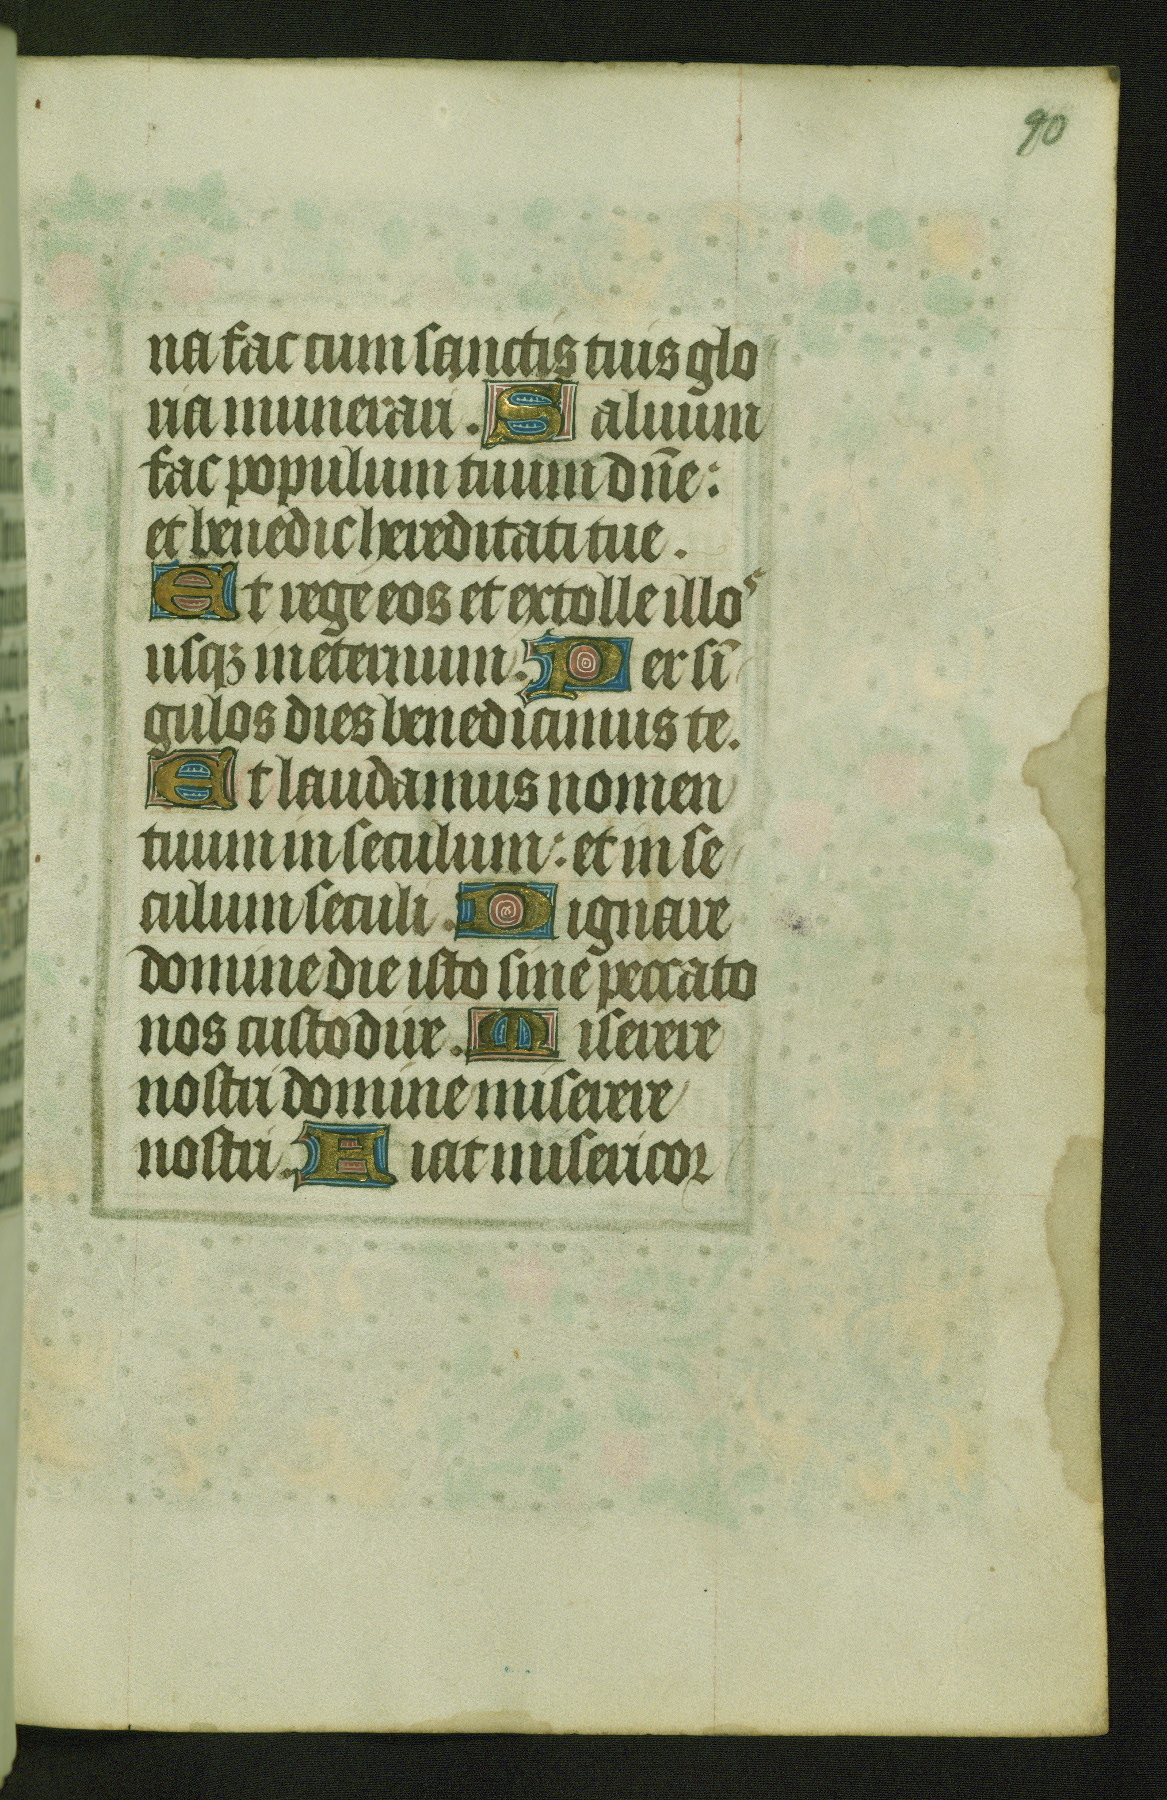 90
na fac cum sanctis tuis glo
ria munerari. Saluum
fac populum tuum dn̄e:
et benedic hereditati tue.
Et rege eos et extolle illos
usqꝫ in eternum. Per sī
gulos dies benedicimus te.
Et laudamus nomen
tuum in seculum: et in se
culum seculi. Dignare
domine die isto sine peccato
nos custodire. Miserere
nostri domine miserere
nostri. Fiat misericor